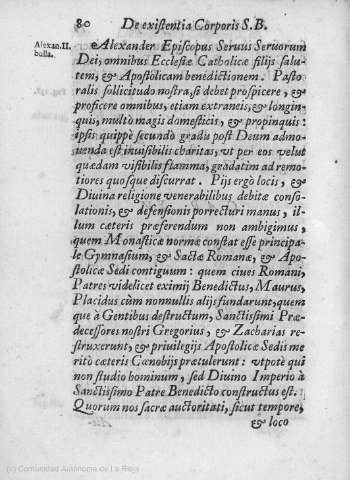 80 De existentia Corporis S.B.
Alexan.II.
bulla.
Alexander Episcopus Seruus Seruorum
Dei, omnibus Ecclesiæ Catholicæ filijs salu-
tem, & Apostolicam benedictionem. Pasto-
ralis sollicitudo nostra, si debet prospicere, &
proficere omnibus, etiam extraneis, & longin-
quis, multò magis domesticis, & propinquis:
ipsis quippè secundo gradu post Deum admo-
uenda est inuisibilis charitas, vt per eos velut
quædam visibilis flamma, gradatim ad remo-
tiores quosque discurrat. Pijs ergò locis, &
Diuina religione venerabilibus debitæ conso-
lationis, & defensionis porrecturi manus, il-
lum cæteris præferendum non ambigimus,
quem Monasticæ normæ constat esse principa-
le Gymnasium, & Sactæ Romanæ, & Apo-
stolicæ Sedi contiguum: quem ciues Romani,
Patres videlicet eximij Benedictus, Maurus,
Placidus cùm nonnullis alijs fundarunt, quem
que à Gentibus destructum, Sanctissimi Præ-
decessores nostri Gregorius, & Zacharias re-
struxerunt, & priuilegijs Apostolicæ Sedis me
ritò cæteris Cœnobijs prætulerunt: vtpotè qui
non studio hominum, sed Diuino Imperio à
Sanctissimo Patre Benedicto constructus est.
Quorum nos sacræ auctoritati, sicut tempore,
& loco
(c) Comunidad Autónoma de La Rioja